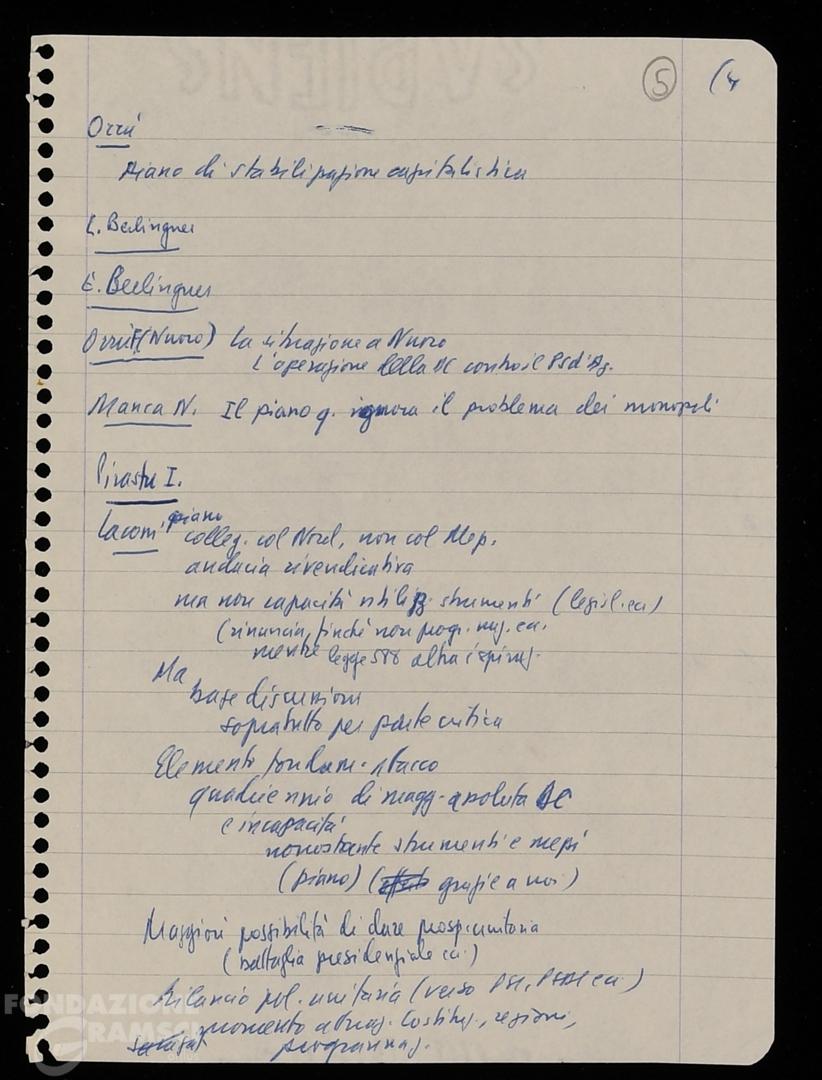 5 (4
Orrù
Piano di stabilizzazione capitalistica
L. Berlinguer
E. Berlinguer
Orrù F (Nuoro) La situazione a Nuoro
L'operazione della DC contro il PSd'Az.
Manca N. Il piano q. ignora il problema dei monopoli
Pirastu I.
Laconi piano
colleg. col Nord, non col Mez.
audacia rivendicativa
ma non capacità utiliz. strumenti (legisl. ecc)
(rinuncia, finché non progr. naz. ecc.
mentre legge 588 altra ispiraz.
Ma
base discussioni
sopratutto per parte critica
Elemento fondam. stacco
quadriennio di magg. assoluta DC
e incapacità
nonostante strumenti e mezzi
(piano) ( grazie a noi)
Maggiori possibilità di dare prosp. unitaria
(battaglia presidenziale ecc.)
Rilancio pol. unitaria (verso PSI, PSDI ecc)
momento attuaz. Costituz., regioni,
programmaz.
FONDAZIONE
GRAMSCI